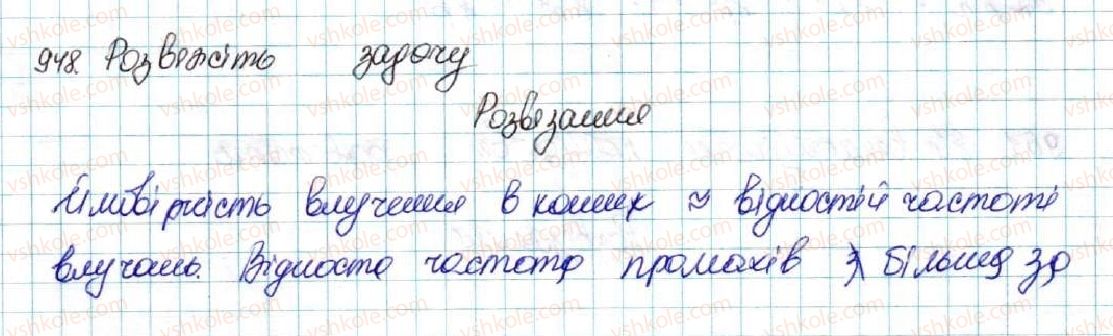 948. Розвяжіть задачу
Розвязання
Ймовірність влучення в кошик ≈ відностій частоті
влучань. Відносто частота промахів є більшя за